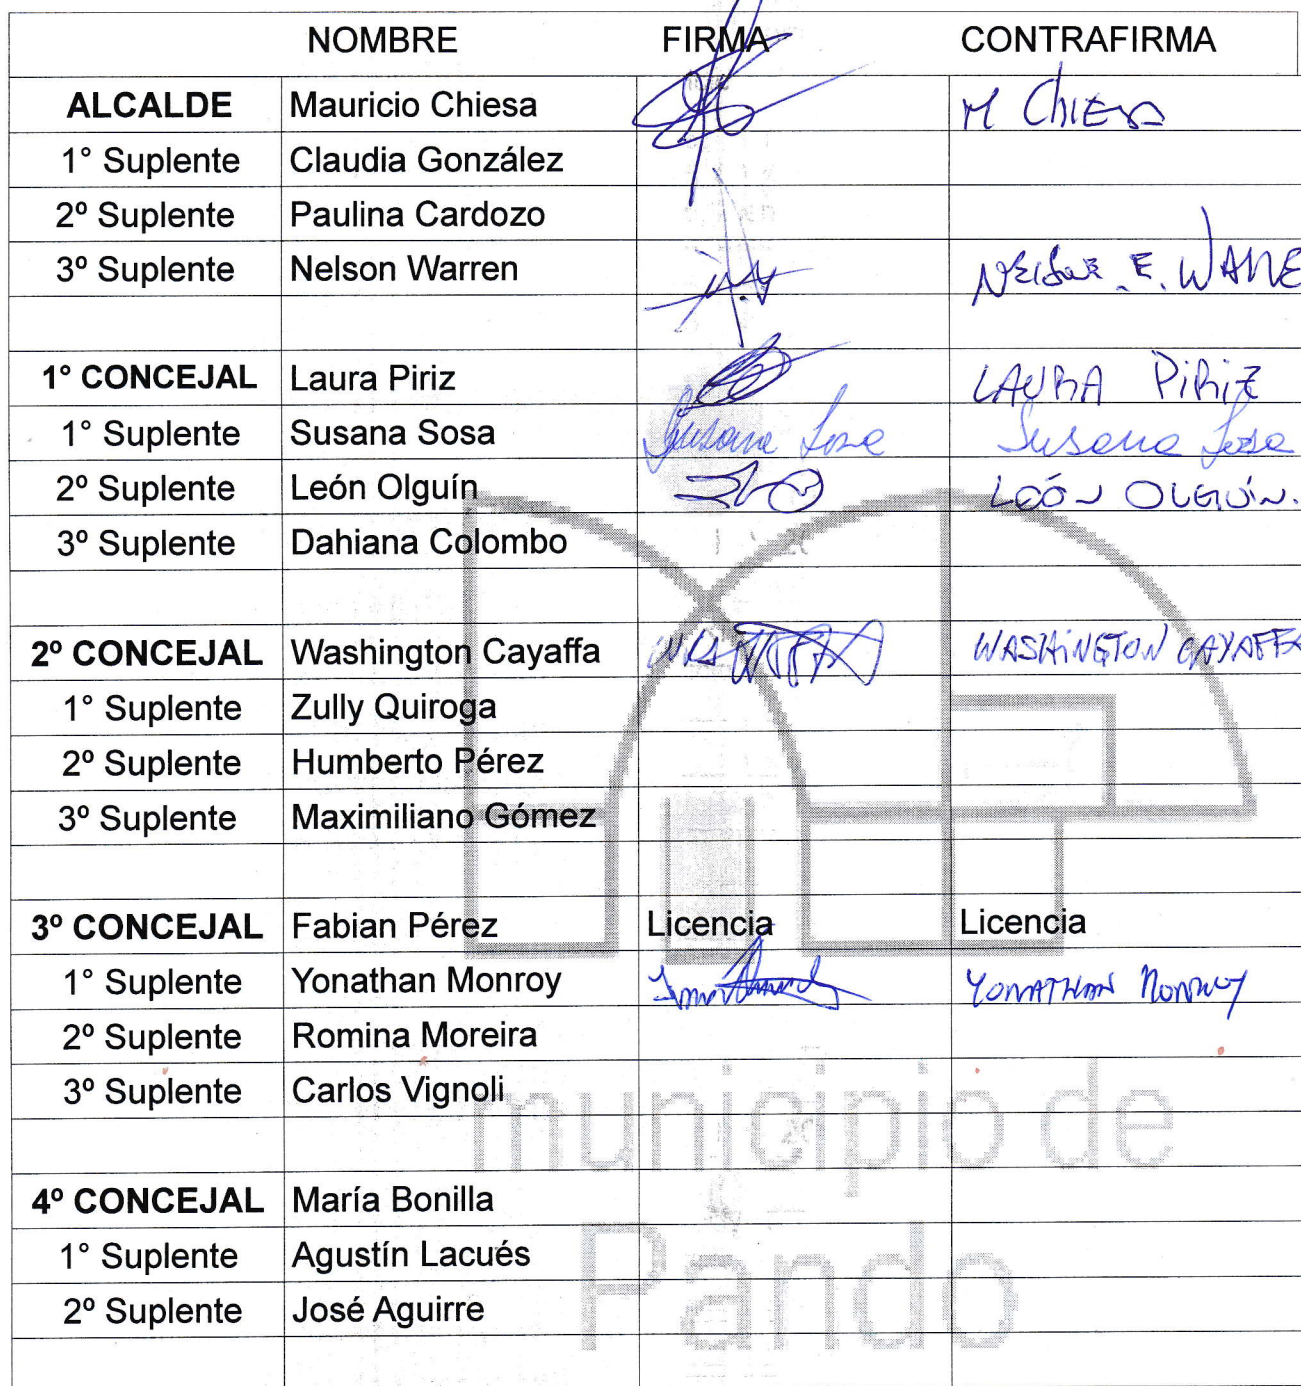 NOMBRE FIRMA CONTRAFIRMA
ALCALDE Mauricio Chiesa M Chiesa
1° Suplente Claudia González
2º Suplente Paulina Cardozo
3º Suplente Nelson Warren E.
1° CONCEJAL Laura Piriz LAURA PiRiZ
1° Suplente Susana Sosa Susana Sosa Susana Sosa
2º Suplente León Olguín LEÓN OLGUÍN.
3º Suplente Dahiana Colombo
2º CONCEJAL Washington Cayaffa WASHiNGTON CAYAFFA
1° Suplente Zully Quiroga
2º Suplente Humberto Pérez
3º Suplente Maximiliano Gómez
3º CONCEJAL Fabian Pérez Licencia Licencia
1° Suplente Yonathan Monroy YONATHAN MONROY
2º Suplente Romina Moreira
3º Suplente Carlos Vignoli
municipio de
4º CONCEJAL María Bonilla
1° Suplente Agustín Lacués
Pando
2º Suplente José Aguirre